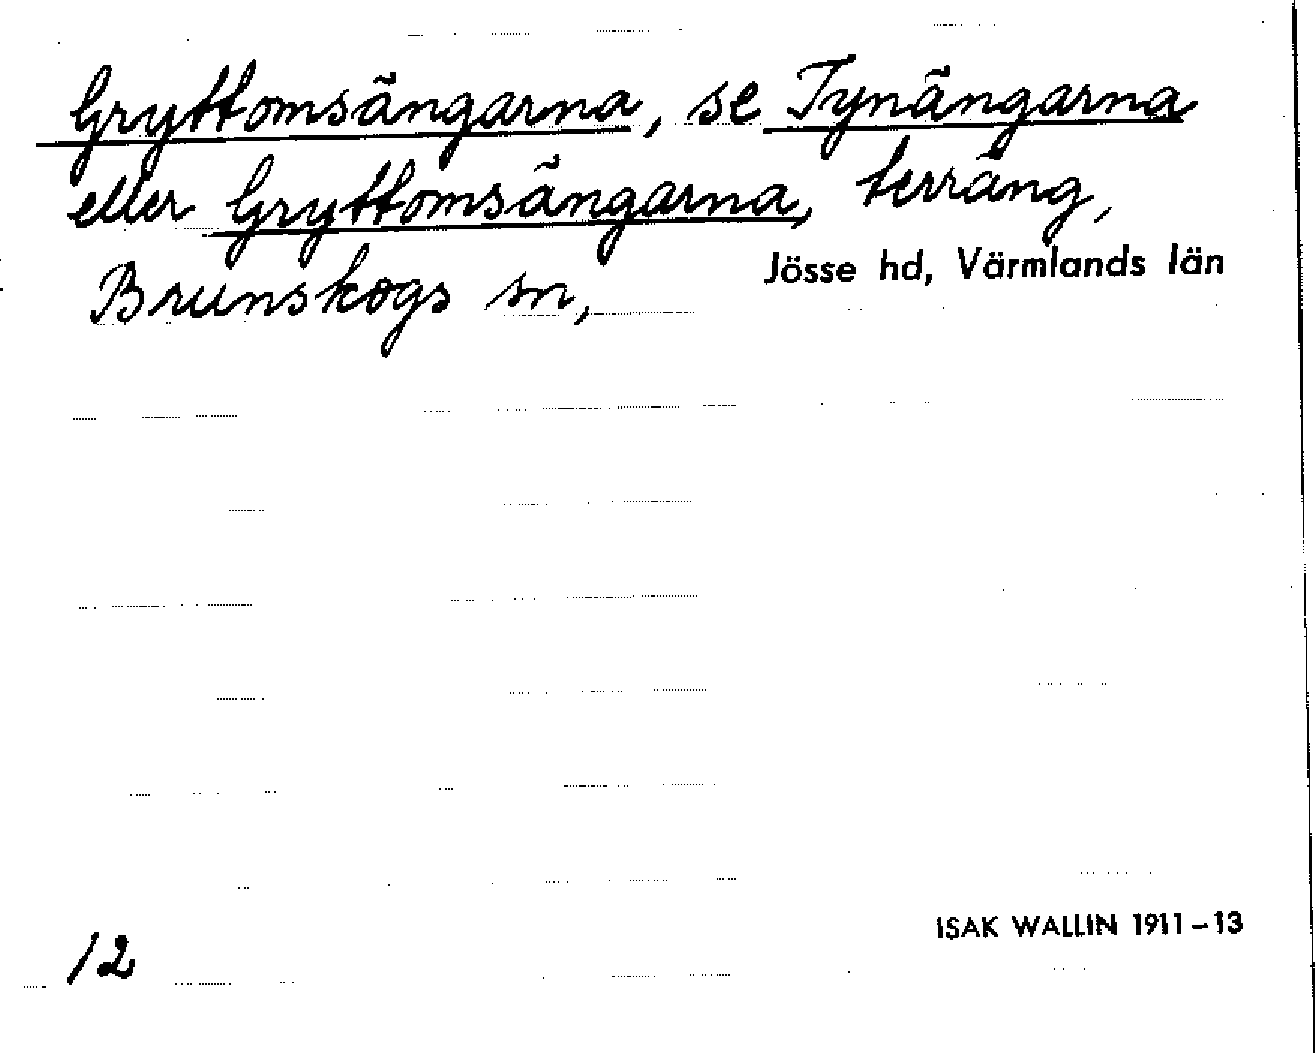 Gryttomsängarna, se Tynängarna
eller Gryttomsängarna, terräng,
Brunskogs sn, Jösse hd, Värmlands län
ISAK WALLIN 1911-13
12